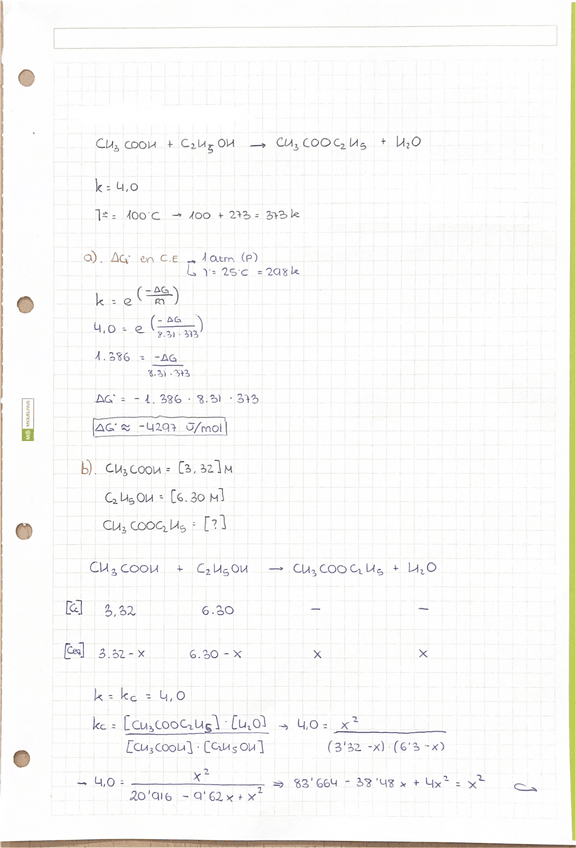 CH3 COOH + C2H5 OH → CH3 COO C2 H5 + H2O
k = 4,0
Tª = 100°C → 100 + 273 = 373 k
a). ΔG° en C.E → 1 atm (P)
↳ T = 25°C = 298 k
k = e (-ΔG/RT)
4,0 = e (-ΔG/8.31 · 373)
1.386 = -ΔG/8.31 · 373
ΔG° = -1.386 · 8.31 · 373
ΔG° ≈ -4297 J/mol
b). CH3 COOH = [3,32] M
C2 H5 OH = [6.30 M]
CH3 COOC2 H5 = [?]
CH3 COOH + C2H5OH → CH3 COO C2 H5 + H2O
3,32 6.30 - -
[Ceq] 3.32 - x 6.30 - x x x
k = kc = 4,0
kc = [CH3COOC2H5] · [H2O] / [CH3COOH] · [C2H5OH] → 4,0 = x² / (3'32 - x) · (6'3 - x)
→ 4,0 = x² / 20'916 - 9'62 x + x² ⇒ 83'664 - 38'48 x + 4x² = x²